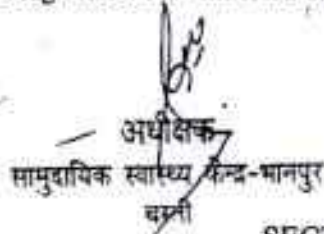 अधीक्षक
सामुदायिक स्वास्थ्य केन्द्र-भानपुर
बस्ती